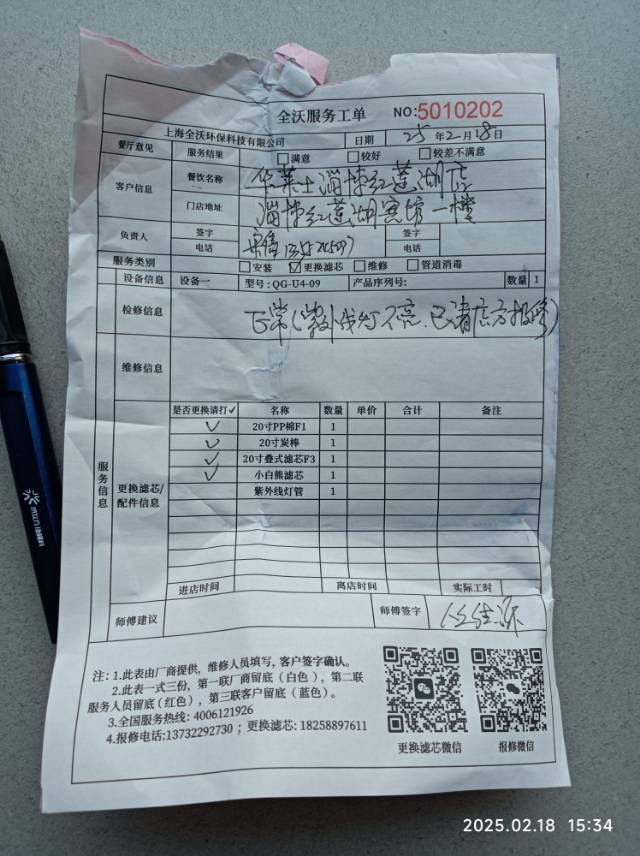 全沃服务工单 NO:5010202
上海全沃环保科技有限公司 日期 25年2月18日
餐厅意见 服务结果 □满意 □较好 □较差不满意
客户信息 餐饮名称 华莱士淄博红莲湖店
门店地址 淄博红莲湖宾馆一楼
负责人 签字 签字
电话 电话
服务类别 □安装 ☑更换滤芯 □维修 □管道消毒
设备信息 设备一 型号:QG-U4-09 产品序列号: 数量 1
检修信息 正常(紫外线灯不亮.已请店方报修)
维修信息
服务信息
更换滤芯/配件信息
是否更换请打✓ 名称 数量 单价 合计 备注
✓ 20寸PP棉F1 1
✓ 20寸炭棒 1
✓ 20寸叠式滤芯F3 1
✓ 小白熊滤芯 1
紫外线灯管 1
进店时间 离店时间 实际工时
师傅建议 师傅签字
注：1.此表由厂商提供，维修人员填写，客户签字确认。
2.此表一式三份，第一联厂商留底（白色），第二联
服务人员留底(红色），第三联客户留底（蓝色）。
3.全国服务热线: 4006121926
4.报修电话:13732292730；更换滤芯: 18258897611
更换滤芯微信 报修微信
2025.02.18 15:34